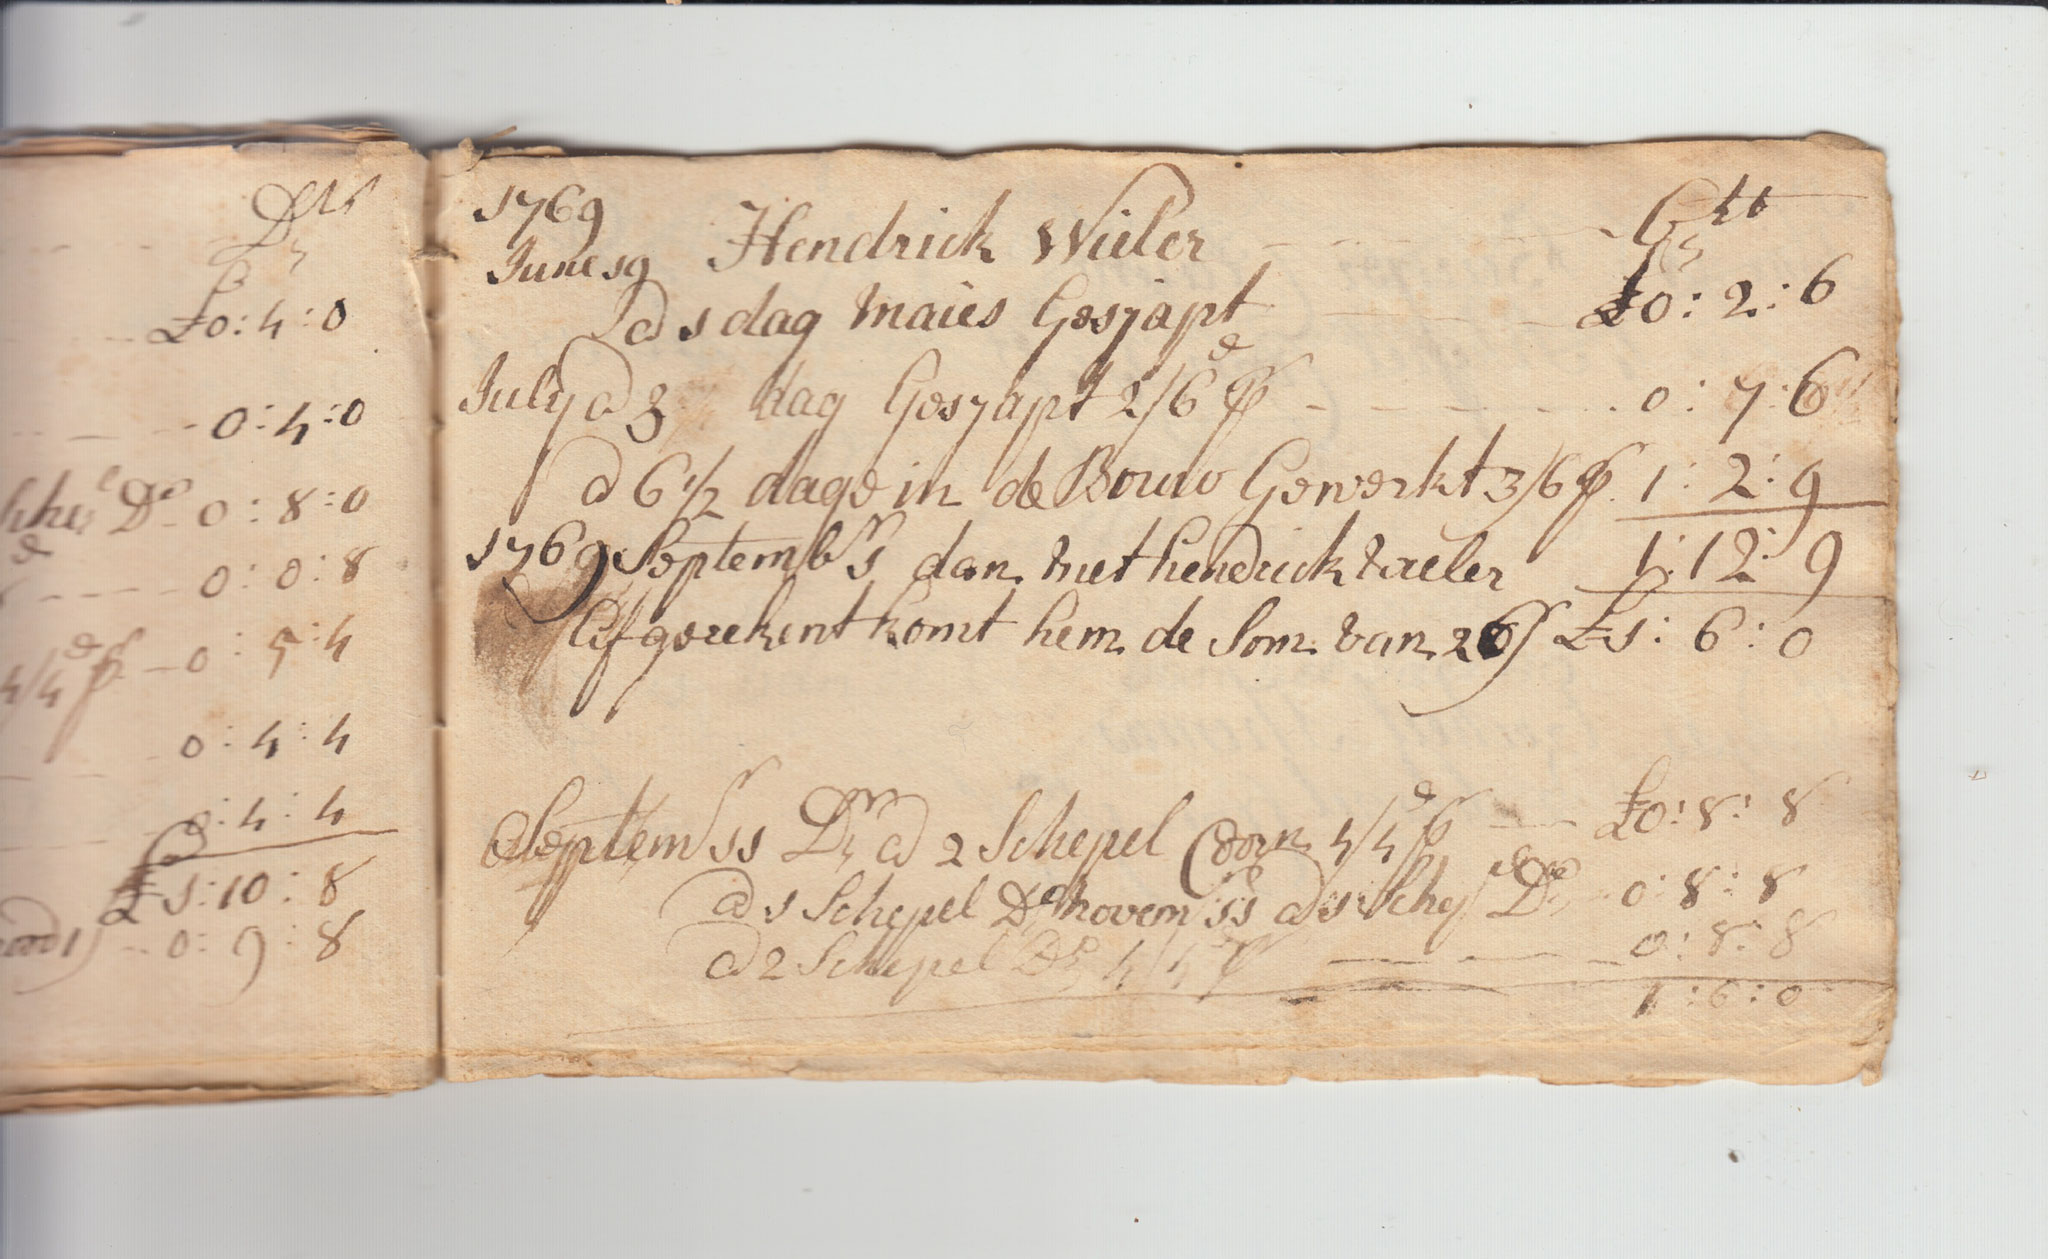 Drs
£0:4:0
0:4:0
Do 0:8:0
0:0:8
4/4d p 0:5:4
0:4:4
0:4:4
£1:10:8
0:9:8
1769 Hendrick Wieler Cr
June 19
@ 1 dag maies Gesjapt £0:2:6
July @ 3 dag Gesjapt 2/6d p 0:7:6
@ 6 1/2 dage in de Bouw Gewerkt 3/6 p 1:2:9
1769 Septembr 1 dan met hendrick wieler 1:12:9
Afgerekent komt hem de Som van 26/ £1:6:0
Septemr 11 Dr @ 2 Schepel Coorn 4/4d p £0:8:8
@ 1 Schepel Do novemr 11 @ 1 Schepl Do 0:8:8
@ 2 Schepel Do 4/4d p 0:8:8
1:6:0